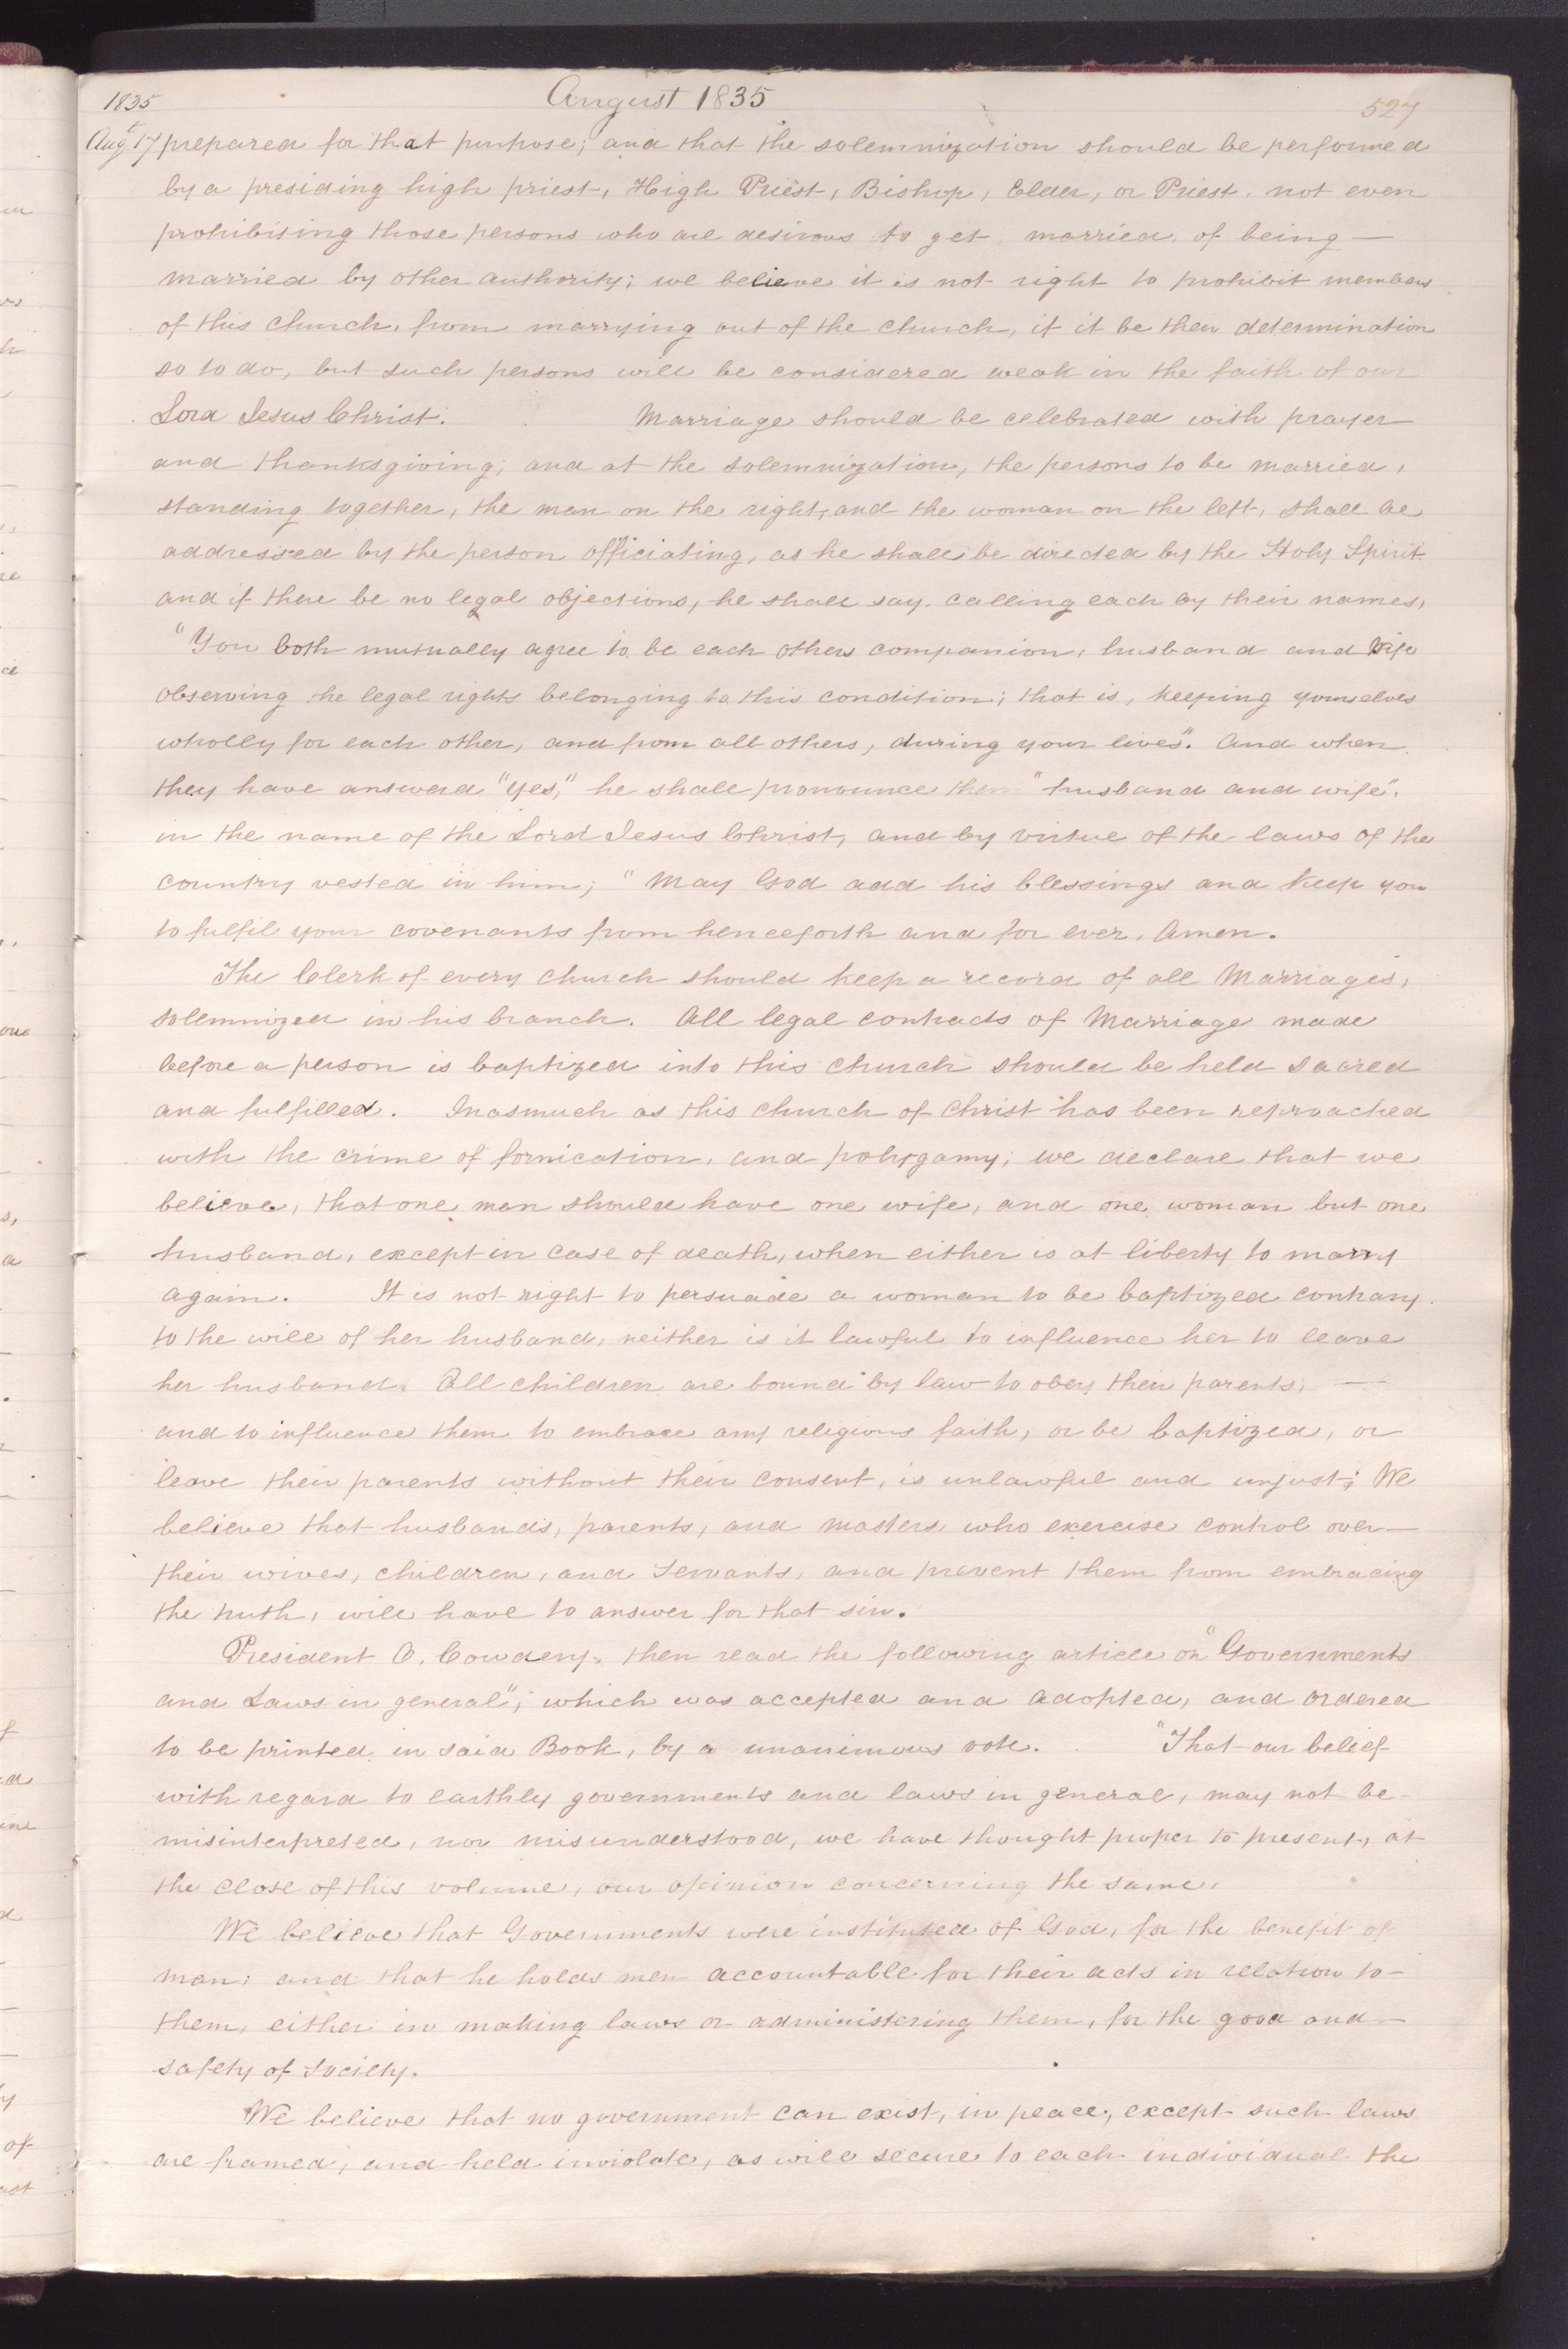 1835 August 1835 527
Aug. 17 prepared for that purpose; and that the solemnization should be performed
by a presiding high priest, High Priest, Bishop, Elder, or Priest, not even
prohibiting those persons who are desirous to get married, of being —
married by other authority; we believe it is not right to prohibit members
of this church, from marrying out of the church, if it be their determination
so to do, but such persons will be considered weak in the faith of our
Lord Jesus Christ. Marriage should be celebrated with prayer
and thanksgiving; and at the solemnization, the persons to be married,
standing together, the man on the right, and the woman on the left, shall be
addressed by the person officiating, as he shall be directed by the Holy Spirit.
and if there be no legal objections, he shall say, calling each by their names,
"You both mutually agree to be each others companion, husband and wife
observing the legal rights belonging to this condition; that is, keeping yourselves
wholly for each other, and from all others, during your lives". And when
they have answerd "yes," he shall pronounce them "husband and wife",
in the name of the Lord Jesus Christ, and by virtue of the laws of the
country vested in him; "May God add his blessings and keep you
to fulfil your covenants from henceforth and for ever, Amen.
The Clerk of every church should keep a record of all Marriages,
solemnized in his branch. All legal contracts of Marriage made
before a person is baptized into this church should be held sacred
and fulfilled. Inasmuch as this church of Christ has been reproached
with the crime of fornication, and polygamy; we declare that we
believe, that one man should have one wife, and one woman but one
husband, except in case of death, when either is at liberty to marry
again. It is not right to persuade a woman to be baptized contrary
to the will of her husband, neither is it lawful to influence her to leave
her husband. All children are bound by law to obey their parents; —
and to influence them to embrace any religious faith, or be baptized, or
leave their parents without their consent, is unlawful and unjust; We
believe that husbands, parents, and masters, who exercise control over —
their wives, children, and servants, and prevent them from embracing
the truth, will have to answer for that sin.
President O. Cowdery, then read the following article on "Governments
and Laws in general"; which was accepted and adopted, and ordered
to be printed in said Book, by a unanimous vote. "That our belief
with regard to earthly governments and laws in general, may not be
misinterpreted, nor misunderstood, we have thought proper to present, at
the close of this volume, our opinion concerning the same.
We believe that Governments were instituted of God, for the benefit of
man; and that he holds men accountable for their acts in relation to —
them, either in making laws or administering them, for the good and —
safety of society.
We believe that no government can exist, in peace, except such laws
are framed, and held inviolate, as will secure to each individual the